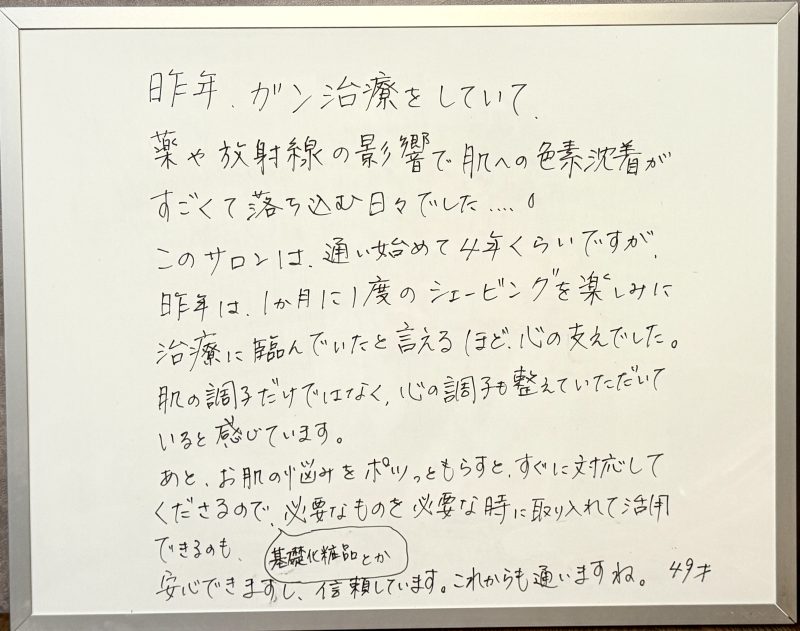 昨年、ガン治療をしていて、
薬や放射線の影響で肌への色素沈着が
すごくて落ち込む日々でした....。
このサロンは、通い始めて4年くらいですが、
昨年は、1か月に1度のシェービングを楽しみに
治療に臨んでいたと言えるほど、心の支えでした。
肌の調子だけではなく、心の調子も整えていただいて
いると感じています。
あと、お肌の悩みをポツっともらすと、すぐに対応して
くださるので、必要なものを必要な時に取り入れて活用
できるのも、
基礎化粧品とか
安心できますし、信頼しています。これからも通いますね。 49才